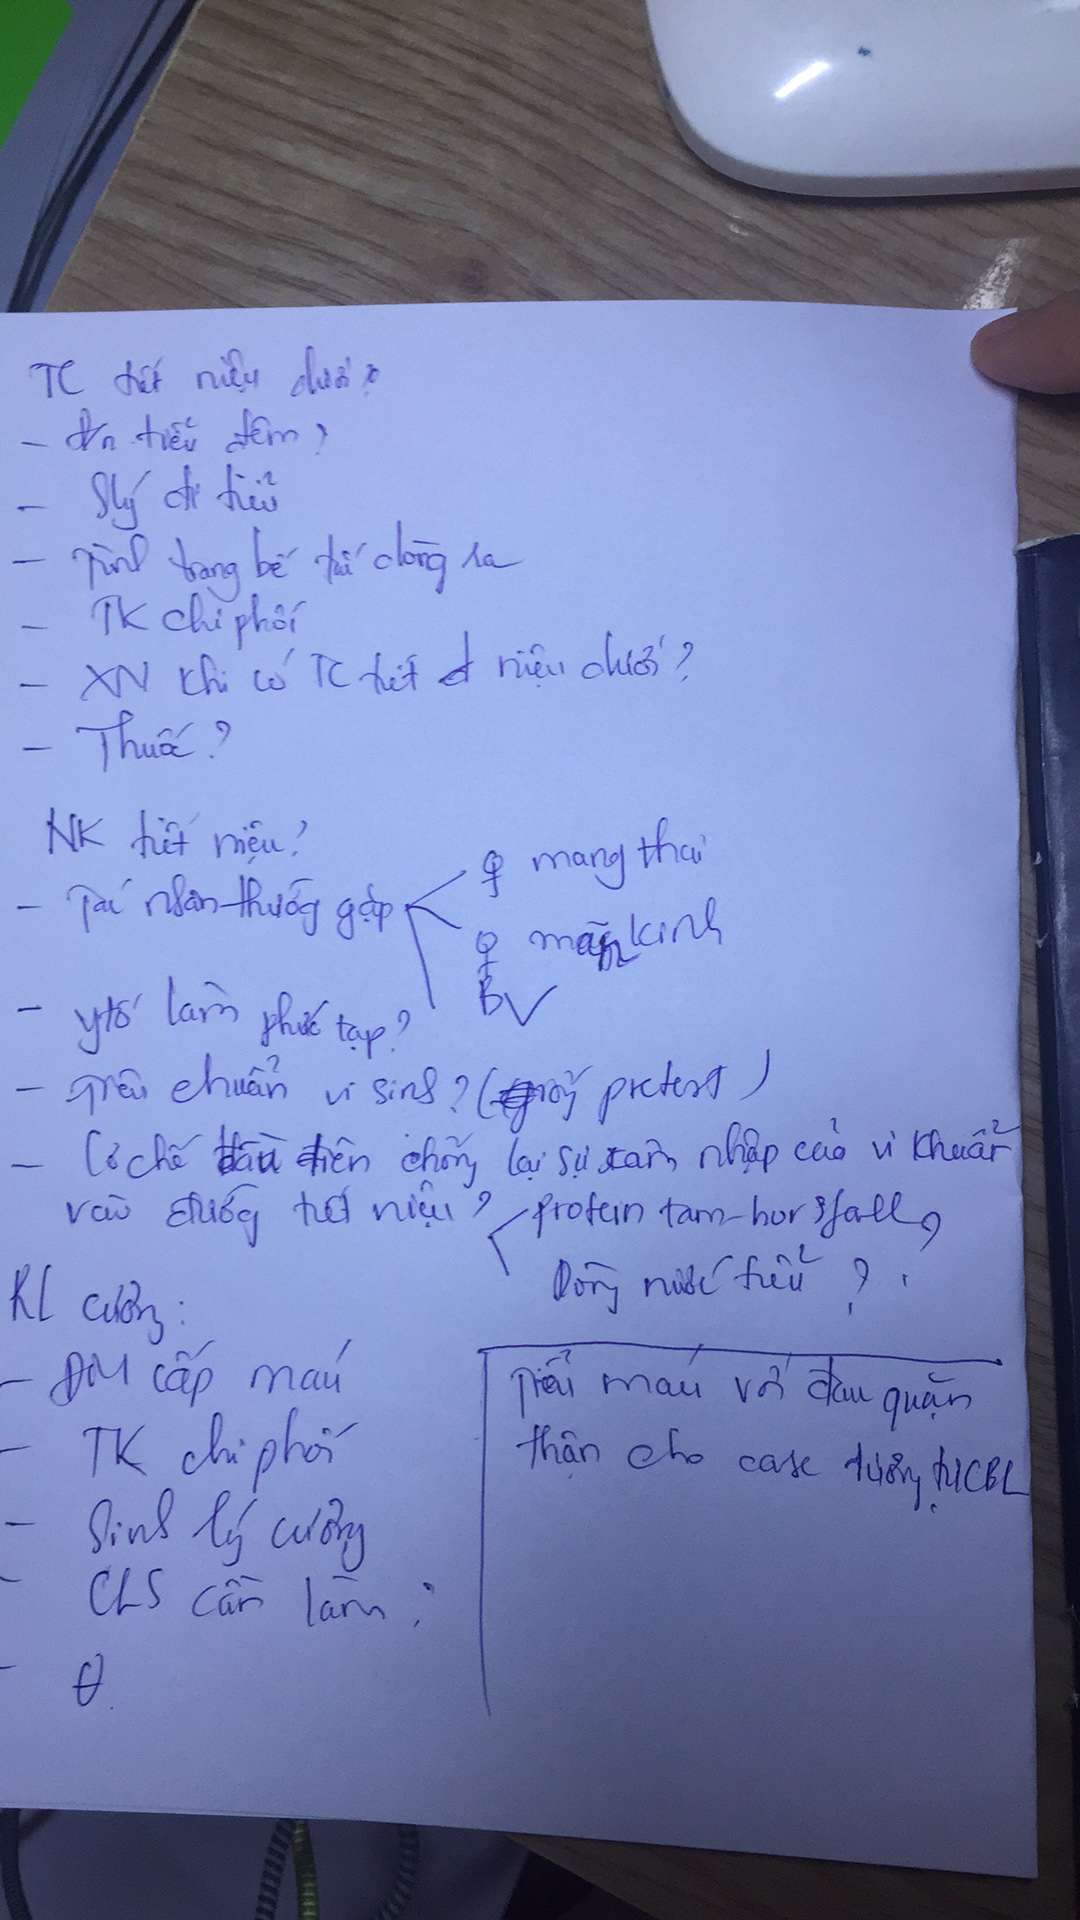 TC tiết niệu dưới?
- Đn tiểu đêm?
- Slý đi tiểu
- Tình trạng bế tắc dòng ra
- TK chi phối
- XN khi có TC tiết niệu dưới?
- Thuốc?
NK tiết niệu?
- Tác nhân thường gặp
♀ mang thai
♀ mãn kinh
BV
- ytố làm phức tạp?
- Tiêu chuẩn vi sinh? ( pretest )
- Cơ chế đầu tiên chống lại sự xâm nhập của vi khuẩn
vào đường tiết niệu?
protein tam-horsfall?
Dòng nước tiểu?
RL cương:
- ĐM cấp máu
- TK chi phối
- Sinh lý cương
- CLS cần làm?
- θ.
Tiểu máu với đau quặn
thận cho case tương tự CBL